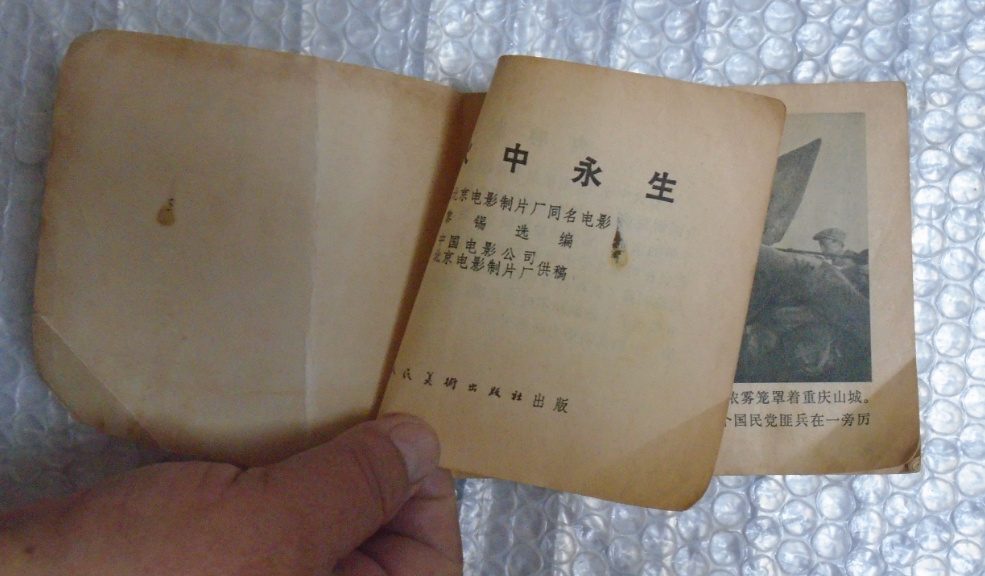 中永生
北京电影制片厂同名电影
锡选编
中国电影公司
北京电影制片厂供稿
民美術出版社出版
浓雾笼罩着重庆山城。
个国民党匪兵在一旁厉